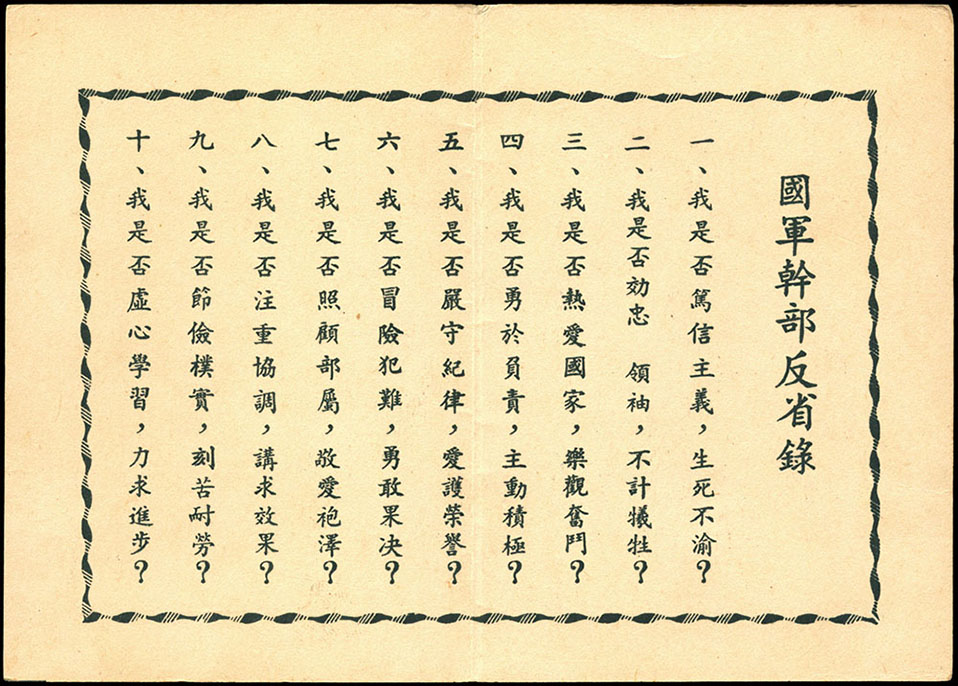 國軍幹部反省錄
一、我是否篤信主義，生死不渝？
二、我是否効忠　領袖，不計犧牲？
三、我是否熱愛國家，樂觀奮鬥？
四、我是否勇於負責，主動積極？
五、我是否嚴守紀律，愛護榮譽？
六、我是否冒險犯難，勇敢果决？
七、我是否照顧部屬，敬愛袍澤？
八、我是否注重協調，講求效果？
九、我是否節儉樸實，刻苦耐勞？
十、我是否虛心學習，力求進步？